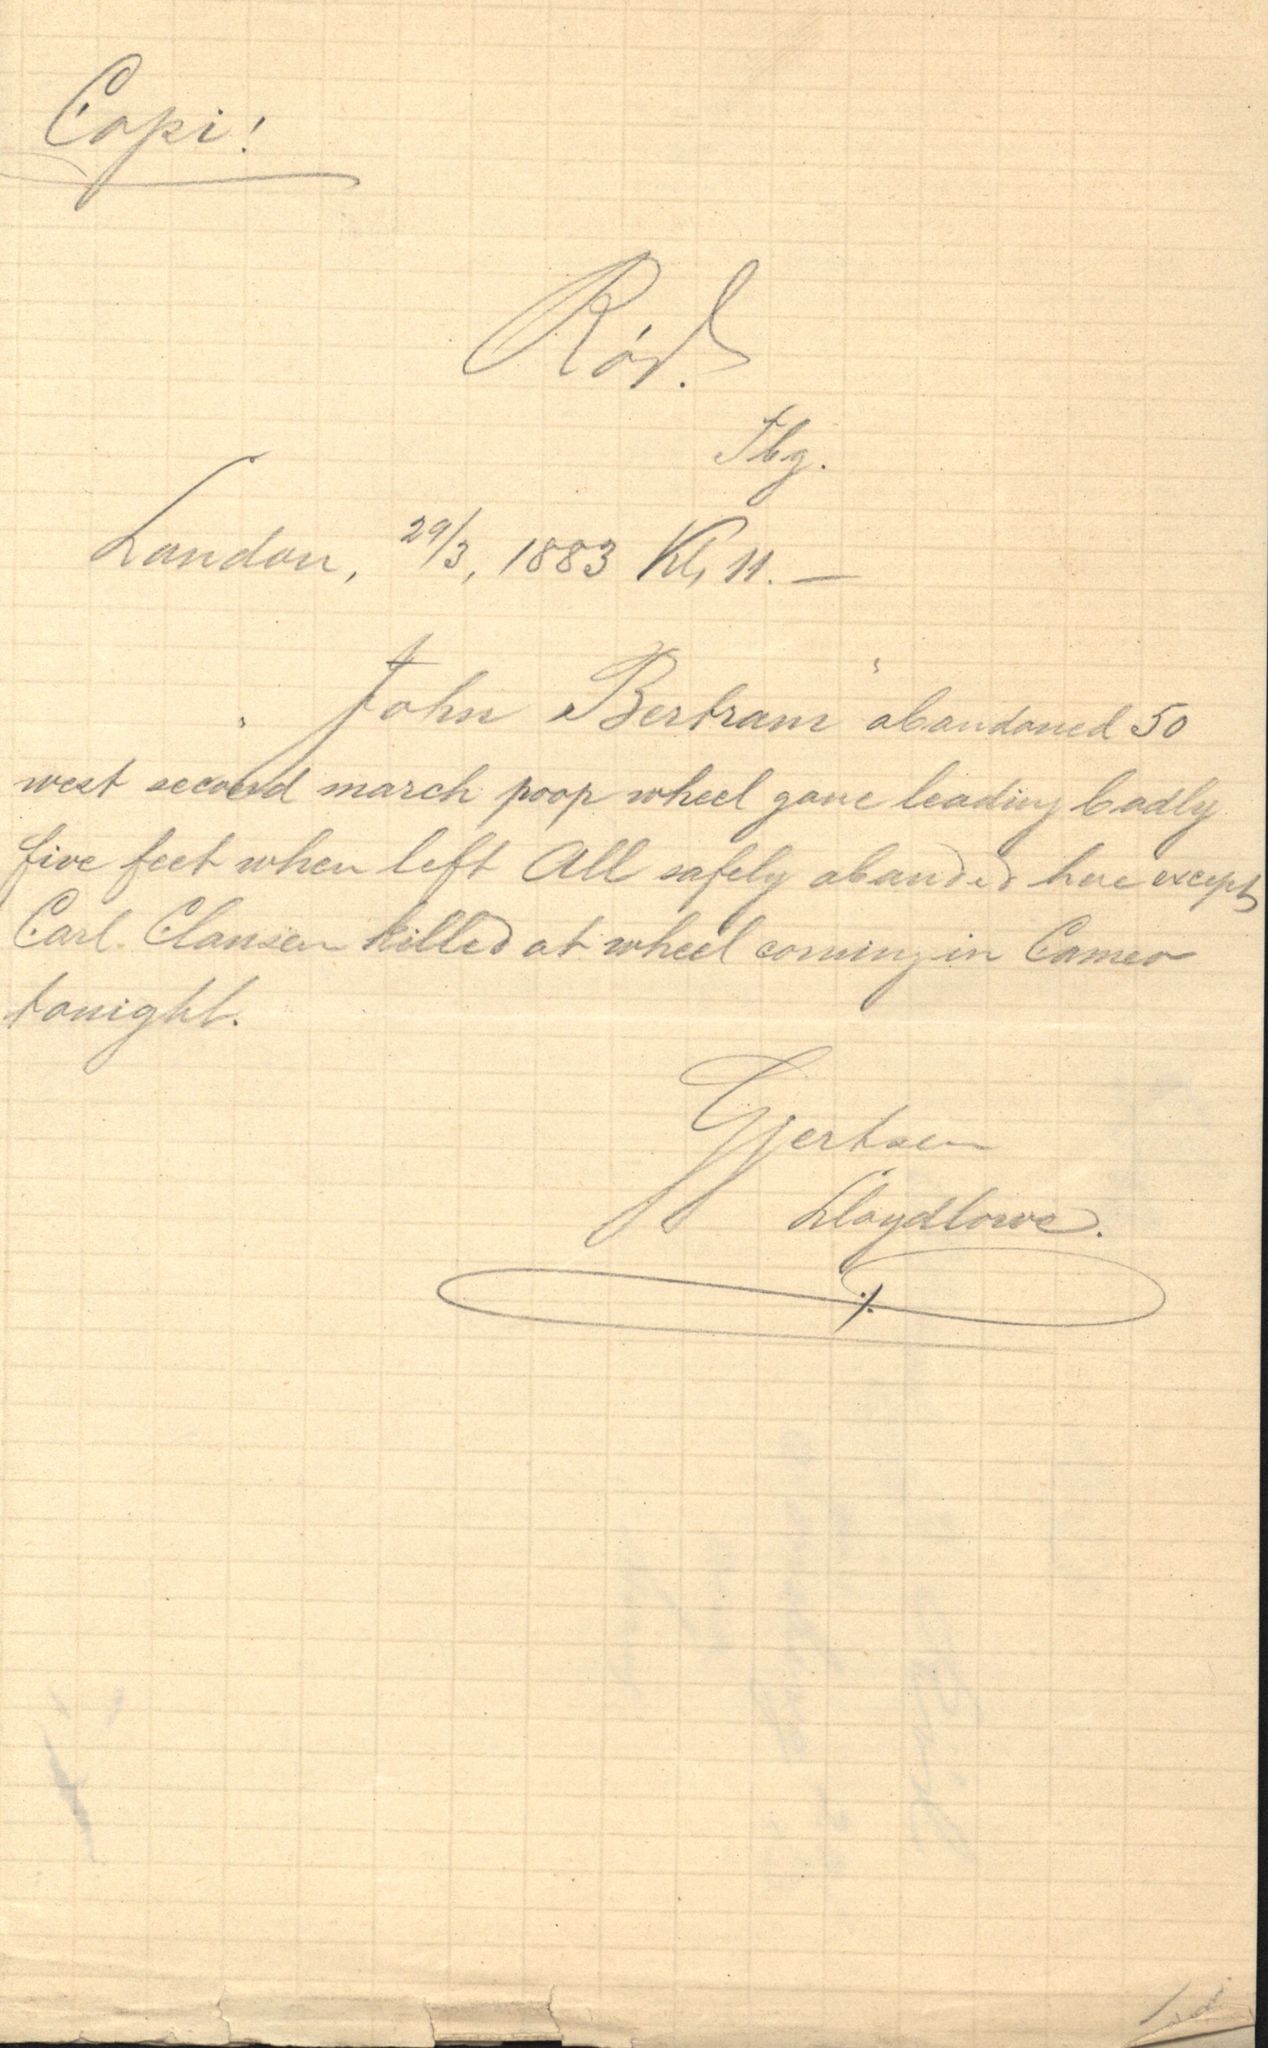 Copi!
Rød.
Tbg.
London, 29/3, 1883 Kl, 11. —
"John Bertram" abandoned 50
west second march poop wheel gone leading badly
five feet when left All safely abanded here except
Carl. Clausen killed at wheel coming in Cameo
tonight.
Gjertsen
Lloydlowe.